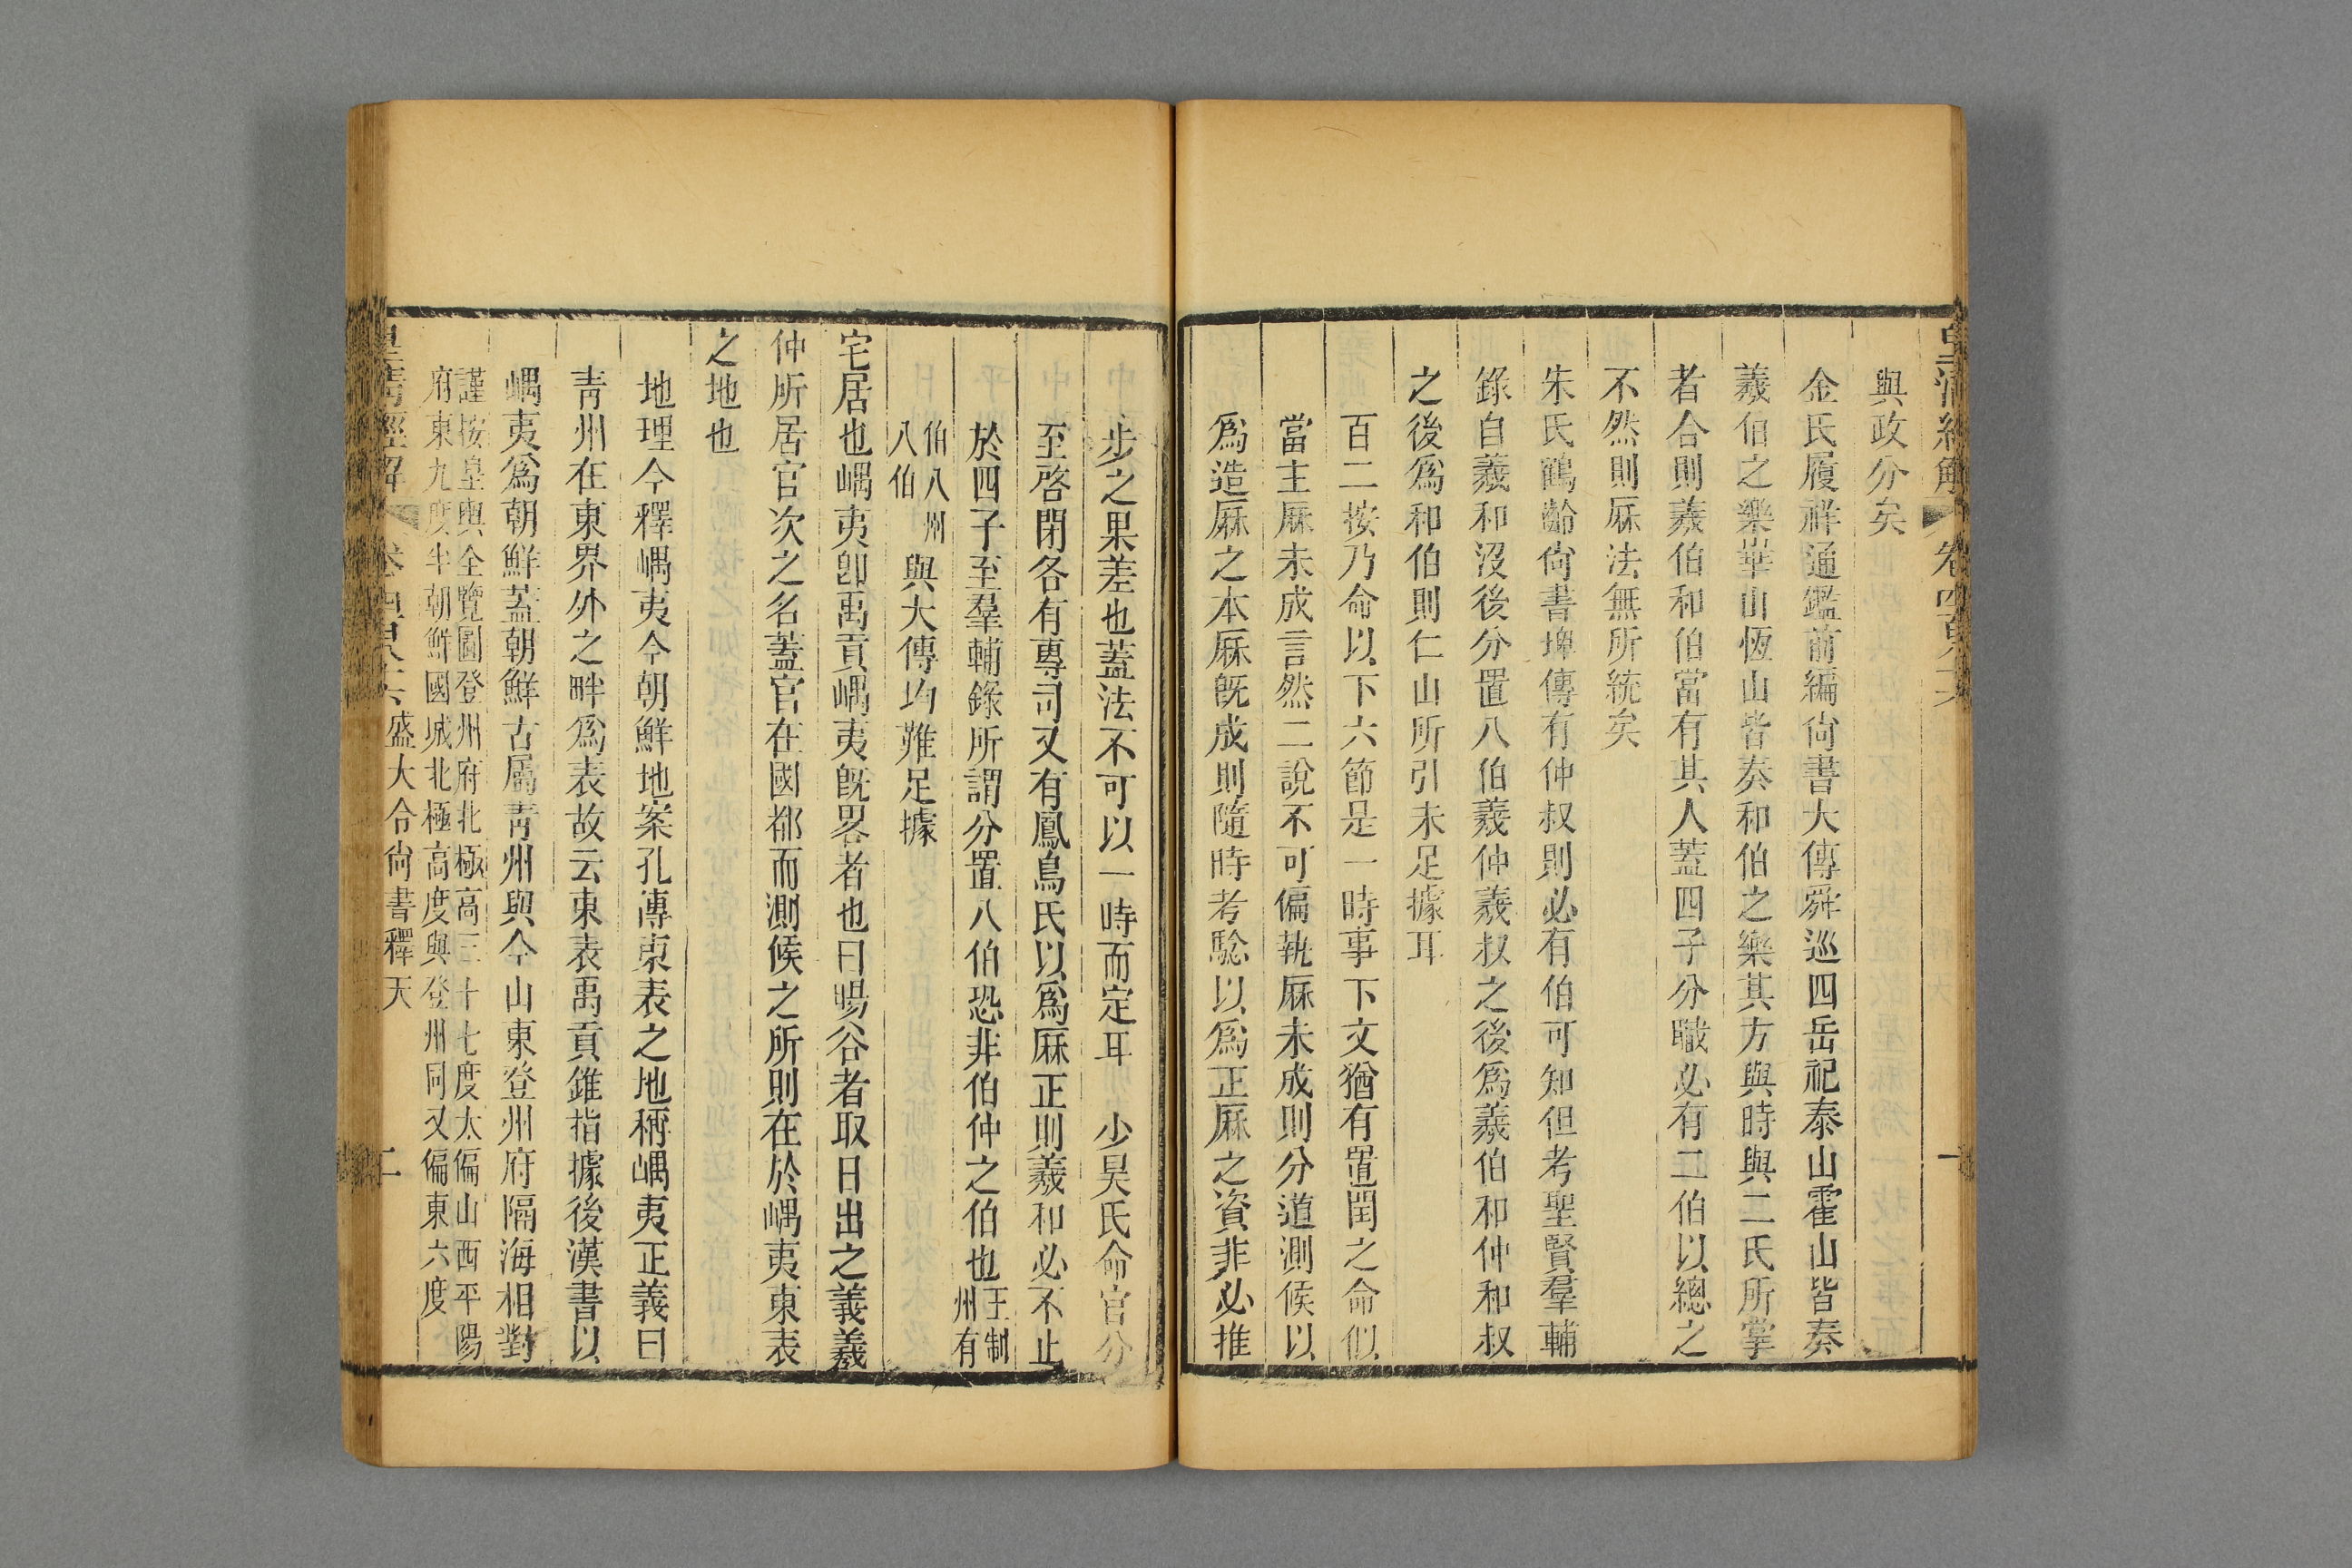 皇清經解 卷四百 一
與政分矣
金氏履祥通鑑前編尙書大傳舜巡四岳祀泰山霍山皆奏
羲伯之樂崋山恆山皆奏和伯之樂其方與時與二氏所掌
者合則羲伯和伯當有其人蓋四子分職必有二伯以總之
不然則厤法無所統矣
朱氏鶴齡尙書埤傳有仲叔則必有伯可知但考聖賢羣輔
錄自羲和沒後分置八伯羲仲羲叔之後爲羲伯和仲和叔
之後爲和伯則仁山所引未足據耳
百二按乃命以下六節是一時事下文猶有置閏之命似
當主厤未成言然二說不可偏執厤未成則分道測候以
爲造厤之本厤旣成則隨時考騐以爲正厤之資非必推
步之果差也蓋法不可以一時而定耳 少昊氏命官分
至啓閉各有專司又有鳳鳥氏以爲厤正則羲和必不止
於四子至羣輔錄所謂分置八伯恐非伯仲之伯也王制州有
伯八州八伯與大傳均難足據
宅居也嵎夷卽禹貢嵎夷旣畧者也曰暘谷者取日出之義羲
仲所居官次之名蓋官在國都而測候之所則在於嵎夷東表
之地也
地理今釋嵎夷今朝鮮地案孔傳東表之地稱嵎夷正義曰
靑州在東界外之畔爲表故云東表禹貢錐指據後漢書以
嵎夷爲朝鮮蓋朝鮮古屬靑州與今山東登州府隔海相對
謹按皇輿全覽圖登州府北極高三十七度太偏山西平陽
府東九度半朝鮮國城北極高度與登州同又偏東六度
皇清經解 卷四百 盛大令尙書釋天 二